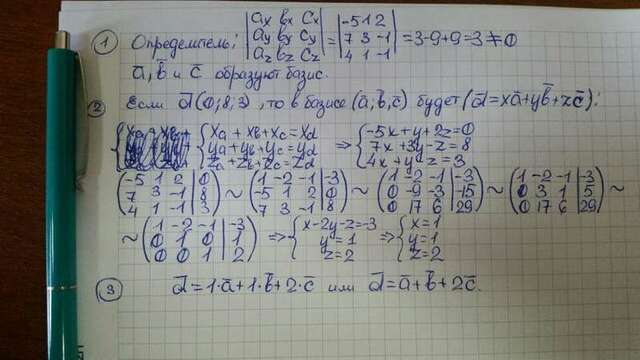 ① Определитель: |aₓ bₓ cₓ; a_y b_y c_y; a_z b_z c_z| = |-5 1 2; 7 3 -1; 4 1 -1| = 3-9+9=3≠0
a̅, b̅ и c̅ образуют базис.
② Если d̅(0;8;3), то в базисе (a̅,b̅,c̅) будет (d̅=xa̅+yb̅+zc̅):
{xₐ+x_b+x_c=x_d; yₐ+y_b+y_c=y_d; zₐ+z_b+z_c=z_d ⇒ {-5x+y+2z=0; 7x+3y-z=8; 4x+y-z=3
(-5 1 2|0; 7 3 -1|8; 4 1 -1|3) ~ (1 -2 -1|-3; -5 1 2|0; 7 3 -1|8) ~ (1 -2 -1|-3; 0 -9 -3|-15; 0 17 6|29) ~ (1 -2 -1|-3; 0 3 1|5; 0 17 6|29) ~
~ (1 -2 -1|-3; 0 1 0|1; 0 0 1|2) ⇒ {x-2y-z=-3; y=1; z=2 ⇒ {x=1; y=1; z=2
③ d̅=1·a̅+1·b̅+2·c̅ или d̅=a̅+b̅+2c̅.